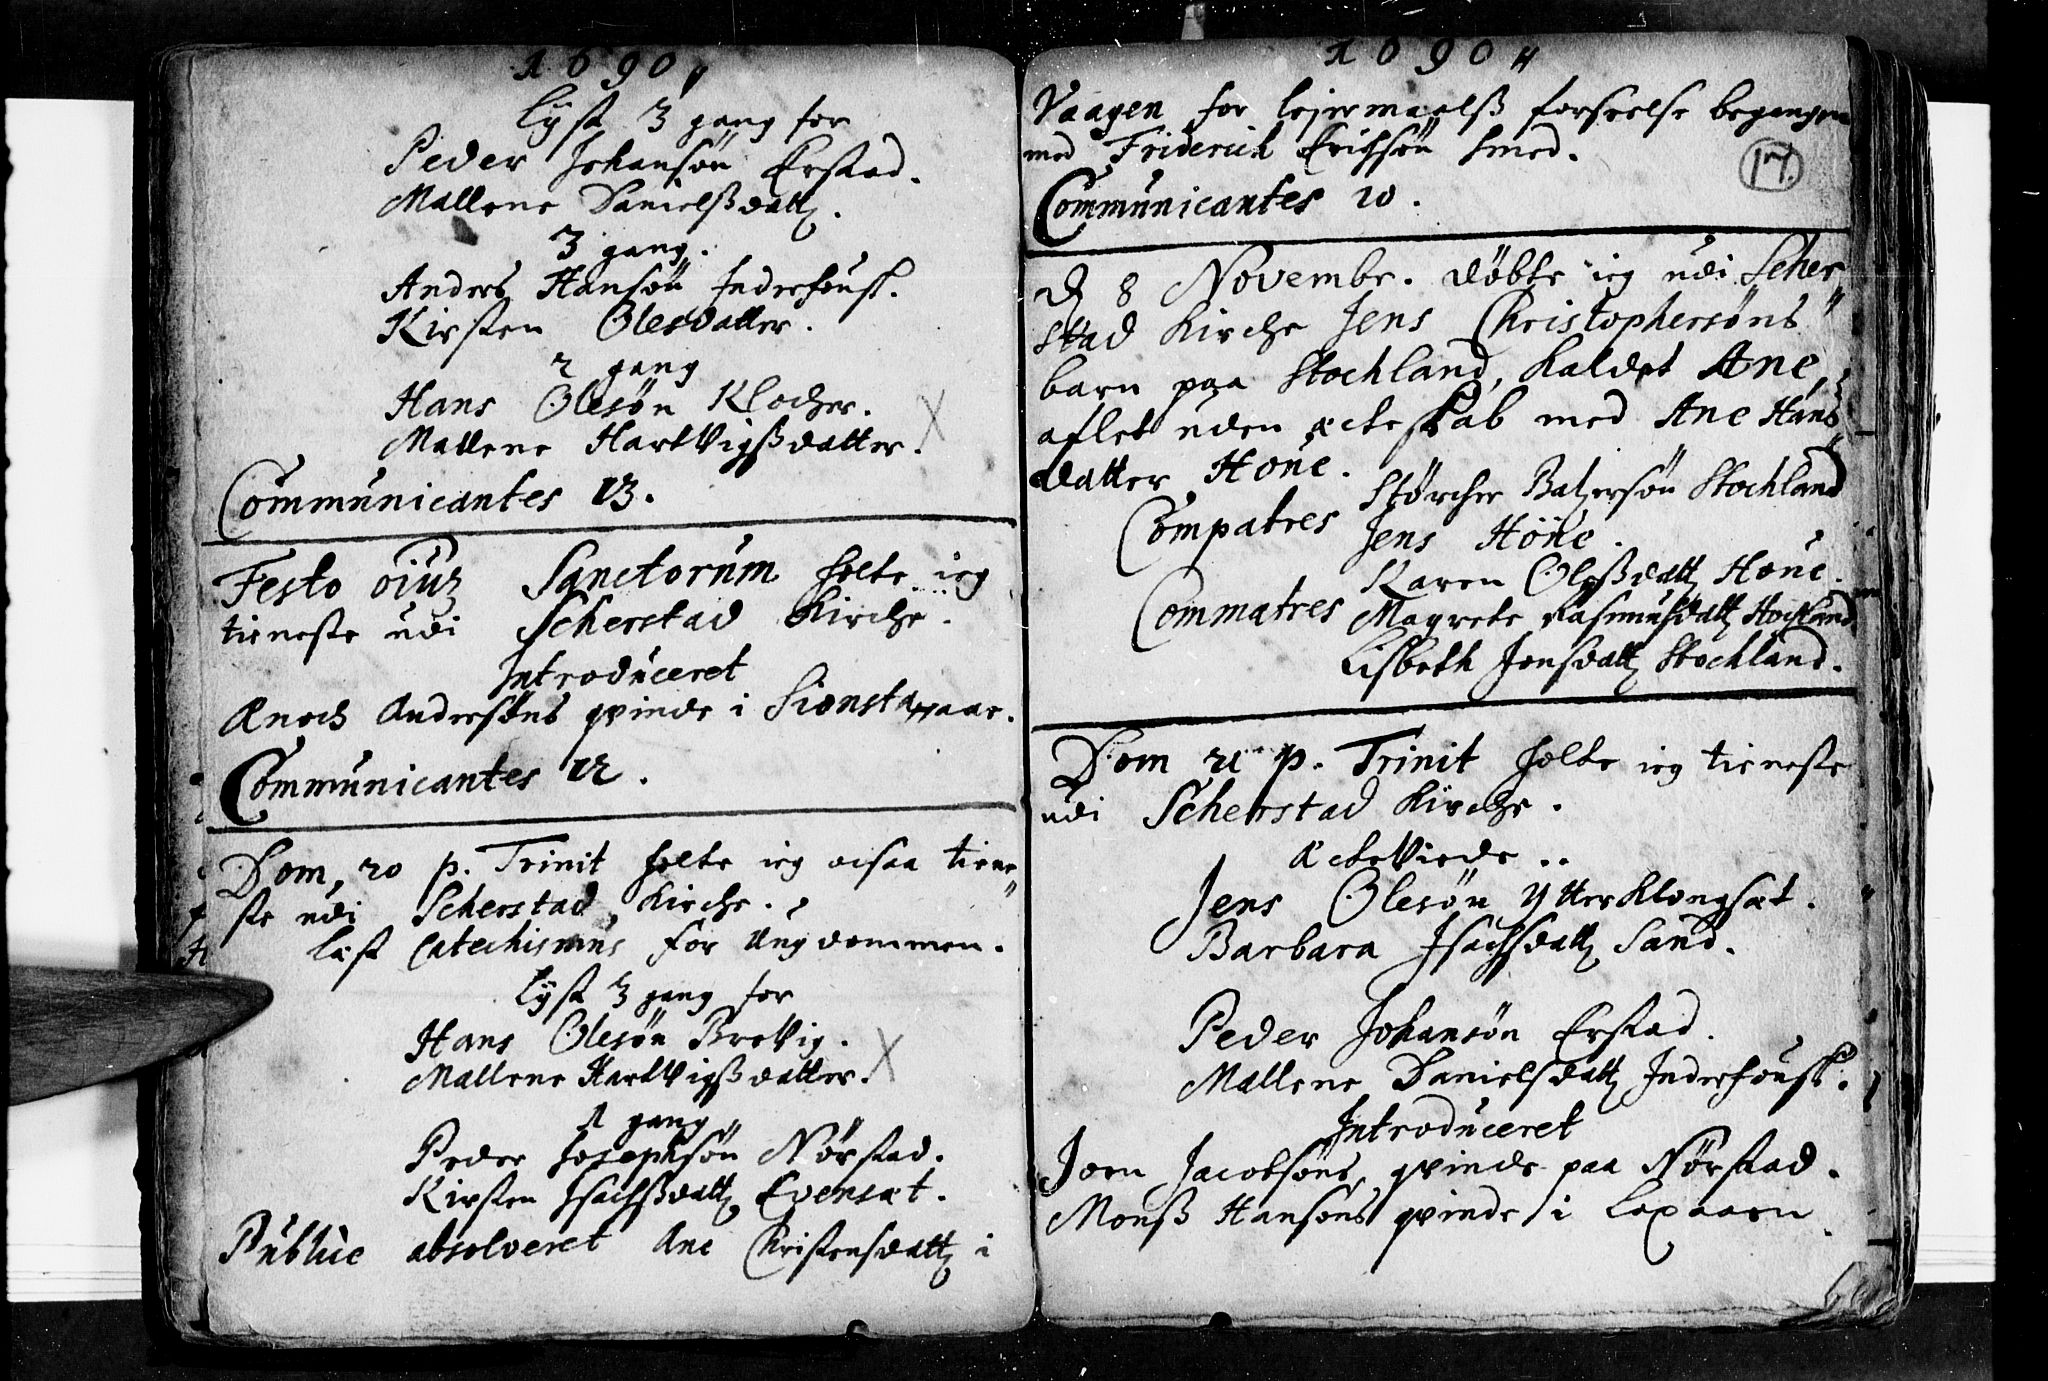 1690
Lyst 3 gang for
Peder Johansøn Erstad.
Mallene Danielsßdatt.
3 gang.
Anders Hansøn Inderhouss.
Kirsten Olesdatter.
2 gang
Hans Olesøn Klocher.
Mallene Hartvigßdatter.
Communicantes 13.
Festo oiuz Sanctorum holte ieg
tieneste udi Scherstad Kirche.
Introduceret
Ænoch Andersøns qvinde i
Communicantes 12.
Dom, 20 p. Trinit holte ieg ocsaa tiene„
ste udi Scherstad Kirche.
læst Catechismus for Ungdommen.
Lyst 3 gang for
Hans Olesøn Brevig.
Mallene Hartvigßdatter.
1 gang
Peder Josephsøn Nørstad.
Kirsten Isachßdatt Evensæt.
Publice absolveret Ane Christensdatt i
1690
17.
Vaagen for lejermaalß forseelse begangen
med Friderich Erichsøn Smed.
Communicantes 20.
D 8 Novembr. døbte ieg udi Scher„
stad Kirche Jens Christophersøns
barn paa Stochland, kaldet Ane,
aflet uden ecteskab med Ane Hans„
datter Hone.
Compatres Størcher Balzersøn Stochland
Jens Hone.
Karen Olsßdatt Hone.
Commatres Magrete Rasmusdatt Stochland
Lisbeth Jonsdatt Stochland.
Dom 21 p. Trinit holte ieg tieneste
udi Scherstad Kirche.
Æcteviede..
Jens Olesøn Ytterklongsæt.
Barbara Isachsdatt Sand.
Peder Johansøn Erstad.
Mallene Danielsdatt Inderhouss.
Introduceret
Joen Jacobsøns, qvinde paa Nørstad.
Monß Hansøns qvinde i Laxaaen.